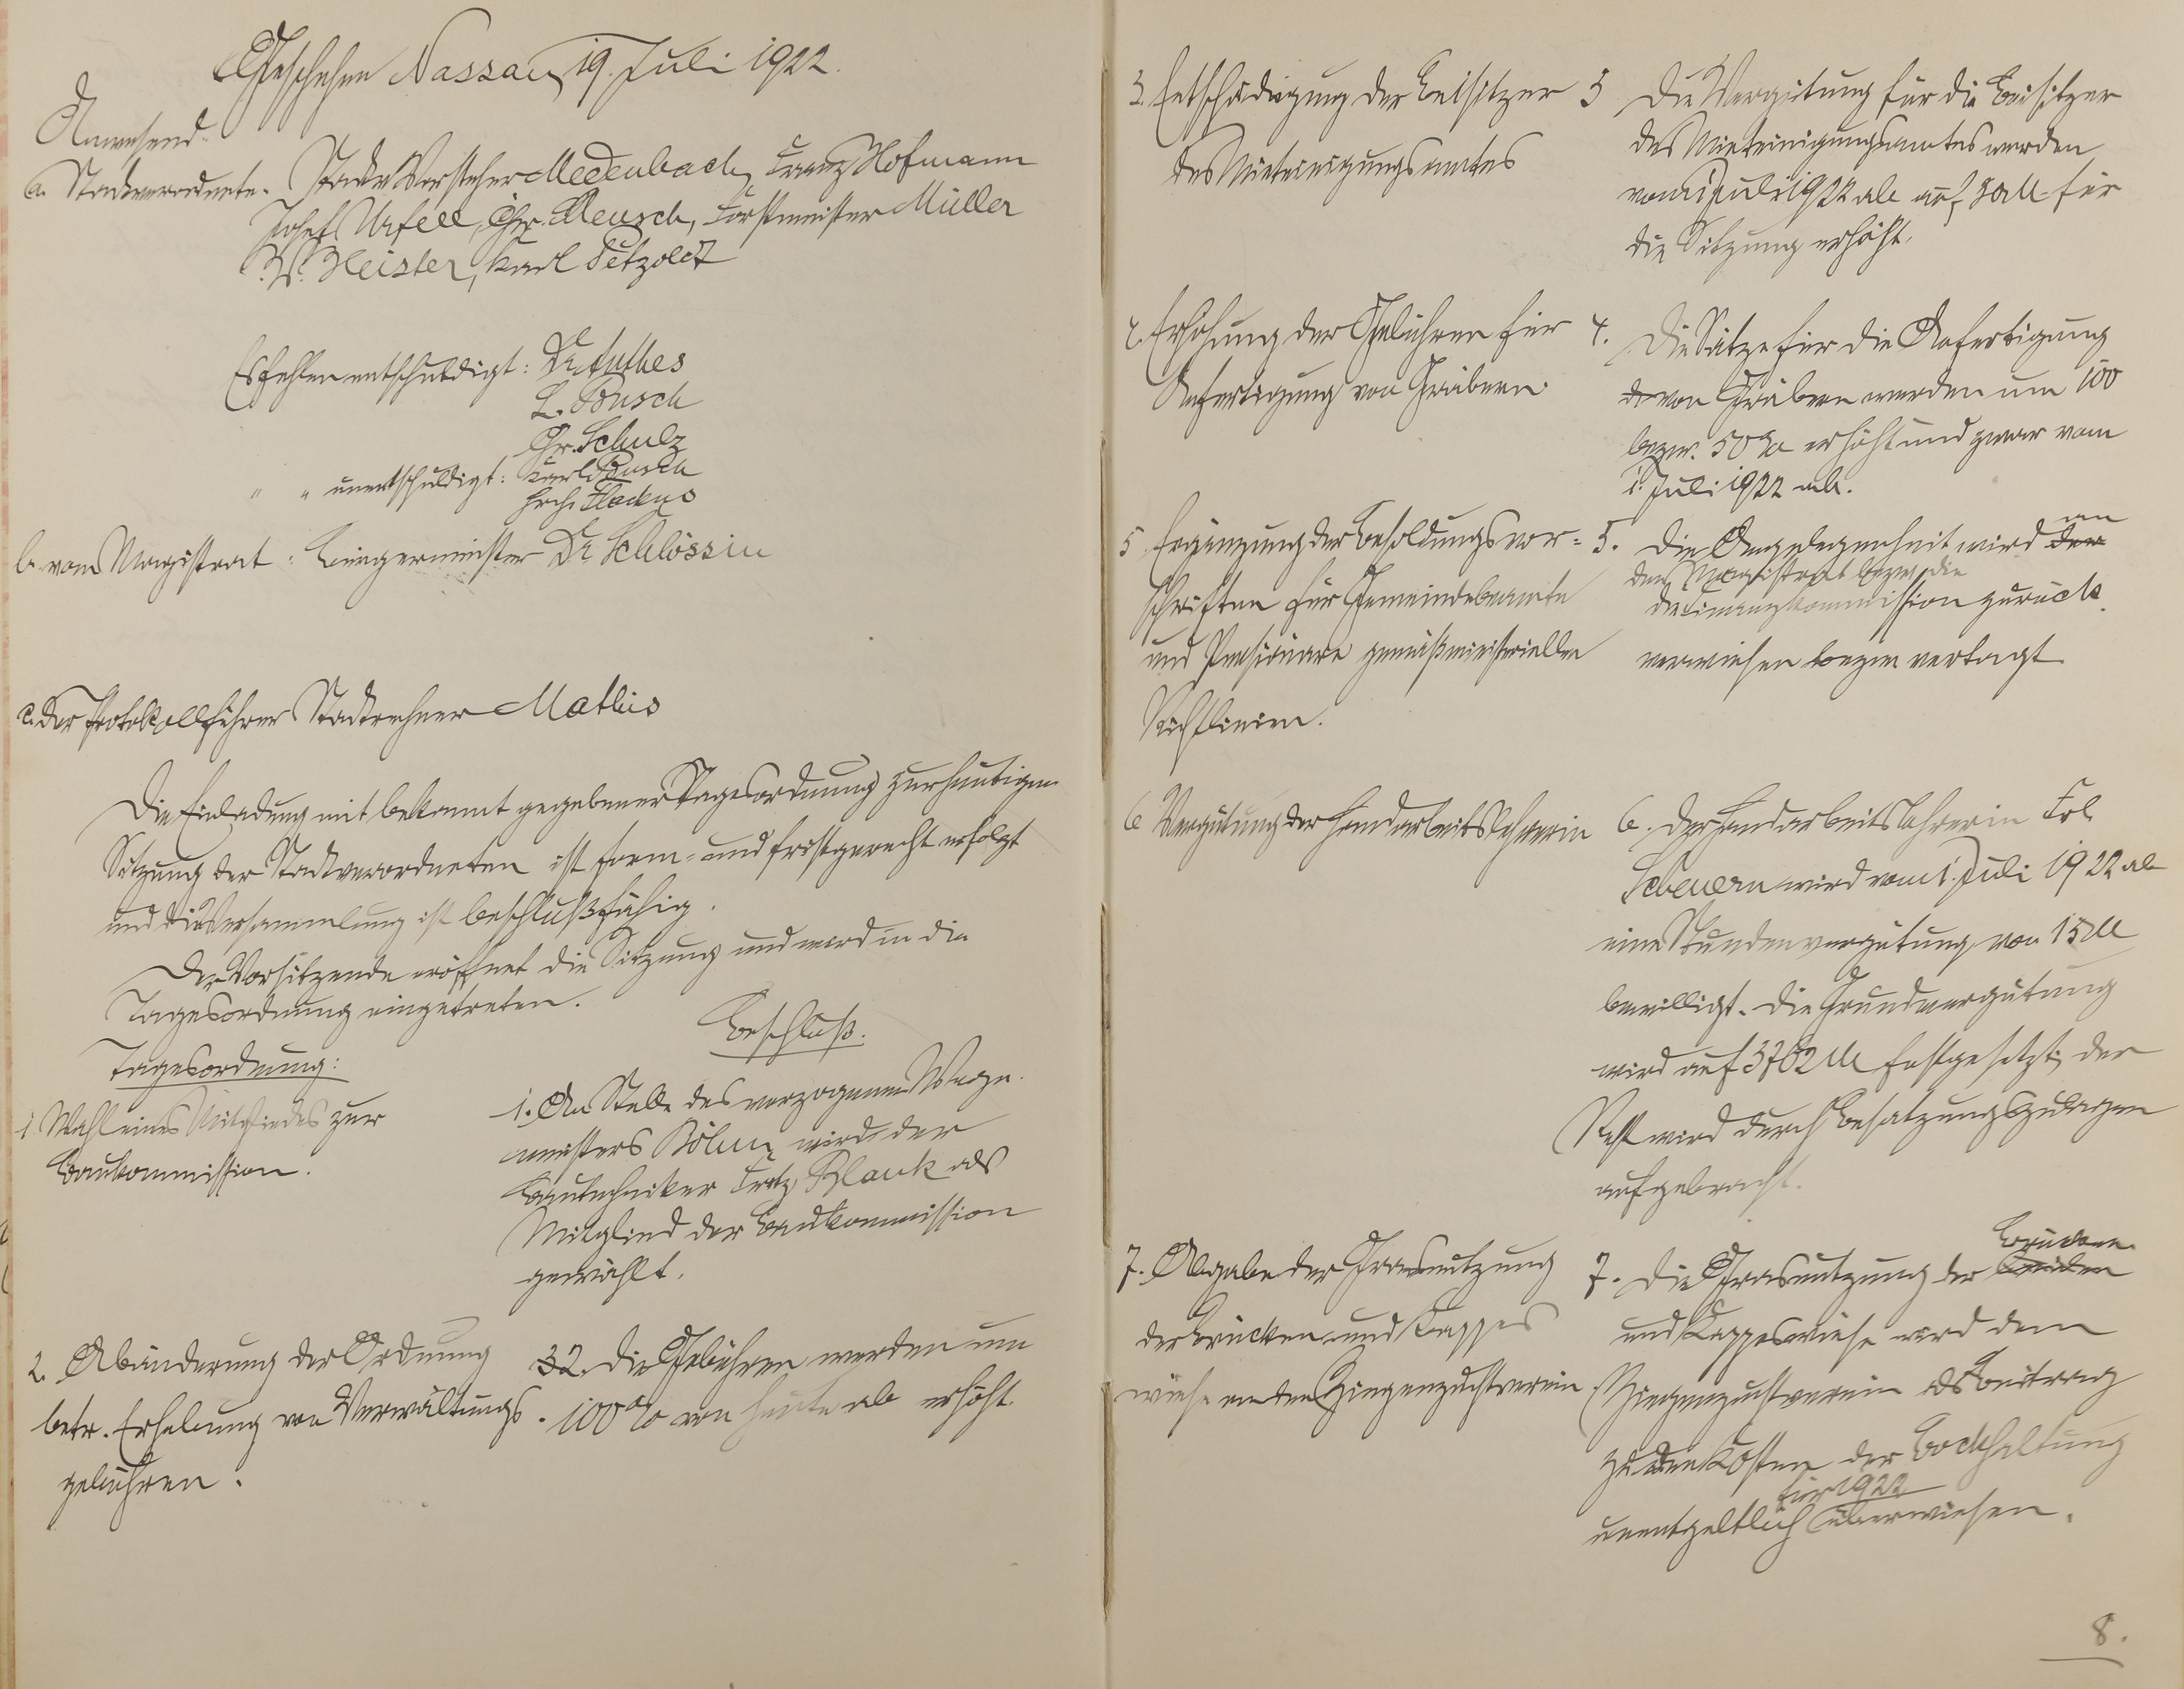 Geschehen Nassau, 19. Juli 1922.
Anwesend
a. Stadtverordnete. Stadtv Vorsteher Medenbach, Franz Hofmann
Josef Unfell, Chr. Meusch, Forstmeister Müller
W. Meister, Karl Petzold
Es fehlen entschuldigt: Dr. Anthes
L. Busch
Chr. Schulz
" " unentschuldigt: Karl Busch
Hch.
b. vom Magistrat: Bürgermeister Dr Schlössin
c. Der Protokollführer Stadtrechner Mathis
Die Einladung mit bekannt gegebener Tagesordnung zur heutigen
Sitzung der Stadtverordneten ist form- und fristgerecht erfolgt
und die Versammlung ist beschlußfähig.
Der Vorsitzende eröffnet die Sitzung und wird in die
Tagesordnung eingetreten.
Beschluß.
Tagesordnung:
1. Wahl eines Mitgliedes zur
Baukommission.
1. An Stelle des verzogenen Wege-
meisters Böhm wird der
Bautechniker Fritz Blank als
Mitglied der Baukommission
gewählt.
2. Abänderung der Ordnung
betr. Erhebung von Verwaltungs-
gebühren.
2. Die Gebühren werden um
100% von heute ab erhöht.
3. Entschädigung der Beisitzer
des Mieteinigungsamtes
3 Die Vergütung für die Beisitzer
des Mieteinigungsamtes werden
vom 1 Juli 1922 ab auf M für
die Sitzung erhöht.
4. Erhöhung der Gebühren für
Anfertigung von Gräbern.
4. Die Sätze für die Anfertigung
von Gräbern werden um 100
bezw. 50% erhöht und zwar vom
1. Juli 1922 ab.
5 Ergänzung der Besoldungsvor-
schriften für Gemeindebeamte
und Pensionäre gemäß ministeriellen
Richtlinien.
5. Die Angelegenheit wird der an
den Magistrat bezw. die
Finanzkommission zurück
verwiesen bezw vertagt
6 Vergütung der Handarbeitslehrerin
6. Der Handarbeitslehrerin Frl.
Scheuern wird vom 1. Juli 1922 ab
eine Stundenvergütung von 15 M
bewilligt. Die Grundvergütung
wird auf 3762 M festgesetzt; der
Rest wird durch Besatzungszulagen
aufgebracht.
7. Abgabe der Grasnutzung
der Brücken und Kappes
wiese an den Ziegenzuchtverein
7. Die Grasnutzung der beiden Brücken
und Kappeswiese wird dem
Ziegenzuchtverein als Beitrag
zu den Kosten der Bockhaltung
für 1922
unentgeltlich überwiesen.
8.